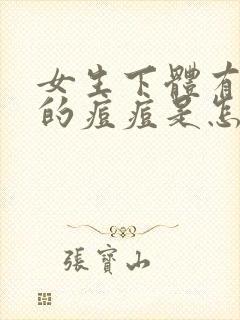 女生下體有
的痘痘是怎
張寶山